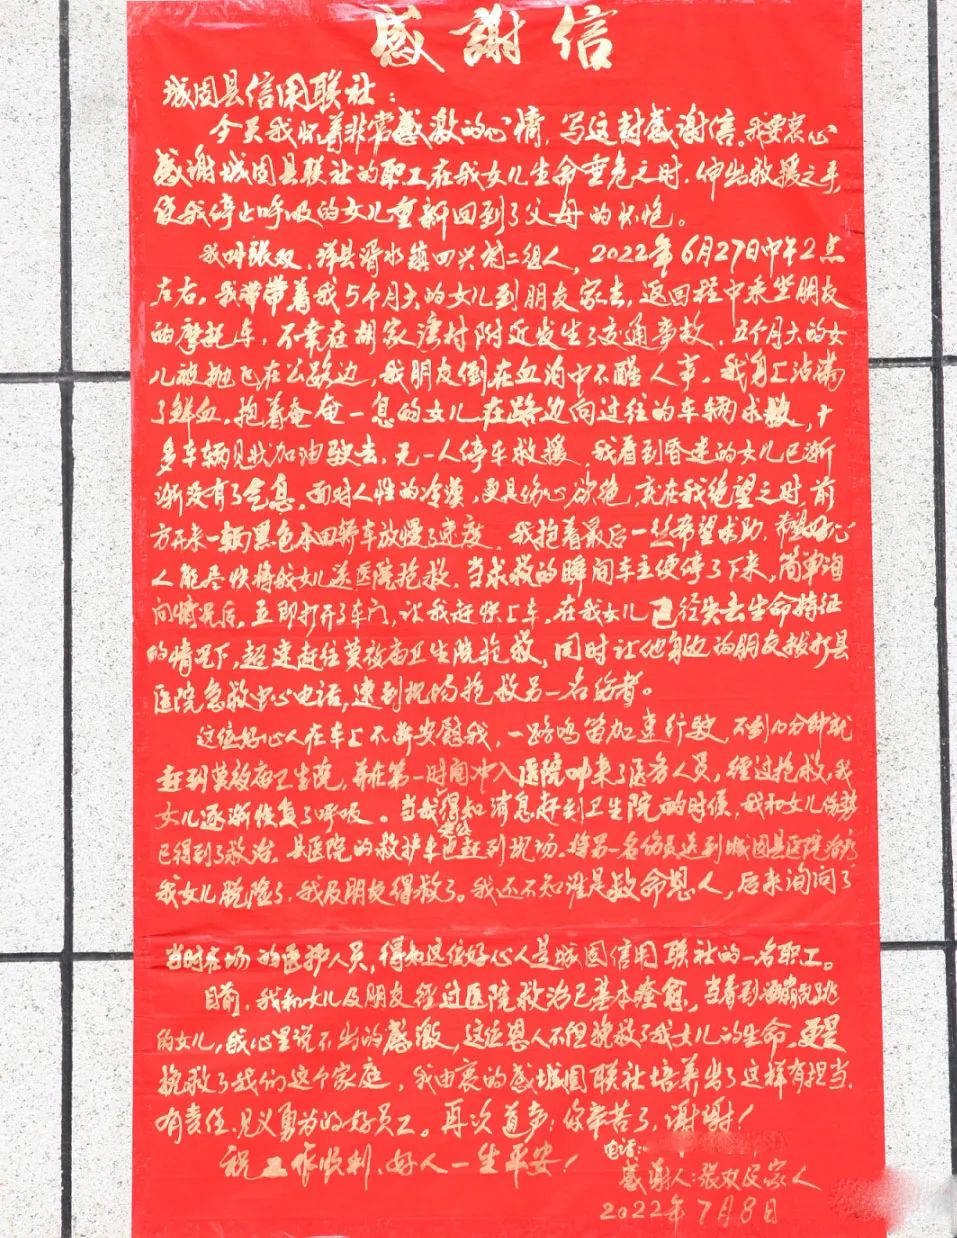 感謝信
城固县信用联社：
今天我怀着非常感激的心情，写这封感谢信。我要衷心
感谢城固县联社的职工在我女儿生命垂危之时，伸出救援之手
使我停止呼吸的女儿重新回到了父母的怀抱。
我叫张双，洋县湑水镇四兴村二组人，2022年6月27日中午2点
左右，我带带着我5个月大的女儿到朋友家去，返回程中乘坐朋友
的摩托车，不幸在胡家湾村附近发生了交通事故，五个月大的女
儿被抛飞在公路边，我朋友倒在血泊中不醒人事。我身上沾满
了鲜血，抱着奄奄一息的女儿在路边向过往的车辆求救，十
多车辆见状加油驶去，无一人停车救援，我看到昏迷的女儿已渐
渐没有了气息。面对人性的冷漠，更是伤心欲绝，就在我绝望之时，前
方开来一辆黑色本田轿车放慢了速度，我抱着最后一丝希望求助，希望好心
人能尽快将我女儿送医院抢救，当求救的瞬间车主便停了下来，简单询
问情况后，立即打开了车门，让我赶快上车，在我女儿已经失去生命特征
的情况下，超速赶往莫爷庙卫生院抢救，同时让他身边的朋友拨打县
医院急救中心电话，速到现场抢救另一名伤者。
这位好心人在车上不断安慰我，一路鸣笛加速行驶，不到10分钟就
赶到莫爷庙卫生院，并在第一时间冲入医院叫来了医务人员，经过抢救，我
女儿逐渐恢复了呼吸。当我得知消息赶到卫生院的时候，我和女儿伤势
已得到了救治。县医院的救护车也赶到现场，将另一名伤员送到城固县医院治疗
我女儿脱险了，我及朋友得救了。我还不知谁是救命恩人，后来询问了
当时在场的医护人员，得知这位好心人是城固信用联社的一名职工。
目前，我和女儿及朋友经过医院救治已基本痊愈，当看到活蹦乱跳
的女儿，我心里说不出的感激，这位恩人不但挽救了我女儿的生命，更是
挽救了我们这个家庭，我由衷的感城固联社培养出了这样有担当，
有责任，见义勇为的好员工。再次道声：你辛苦了，谢谢！
祝工作顺利，好人一生平安！
电话：
感谢人：张双及家人
2022年7月8日